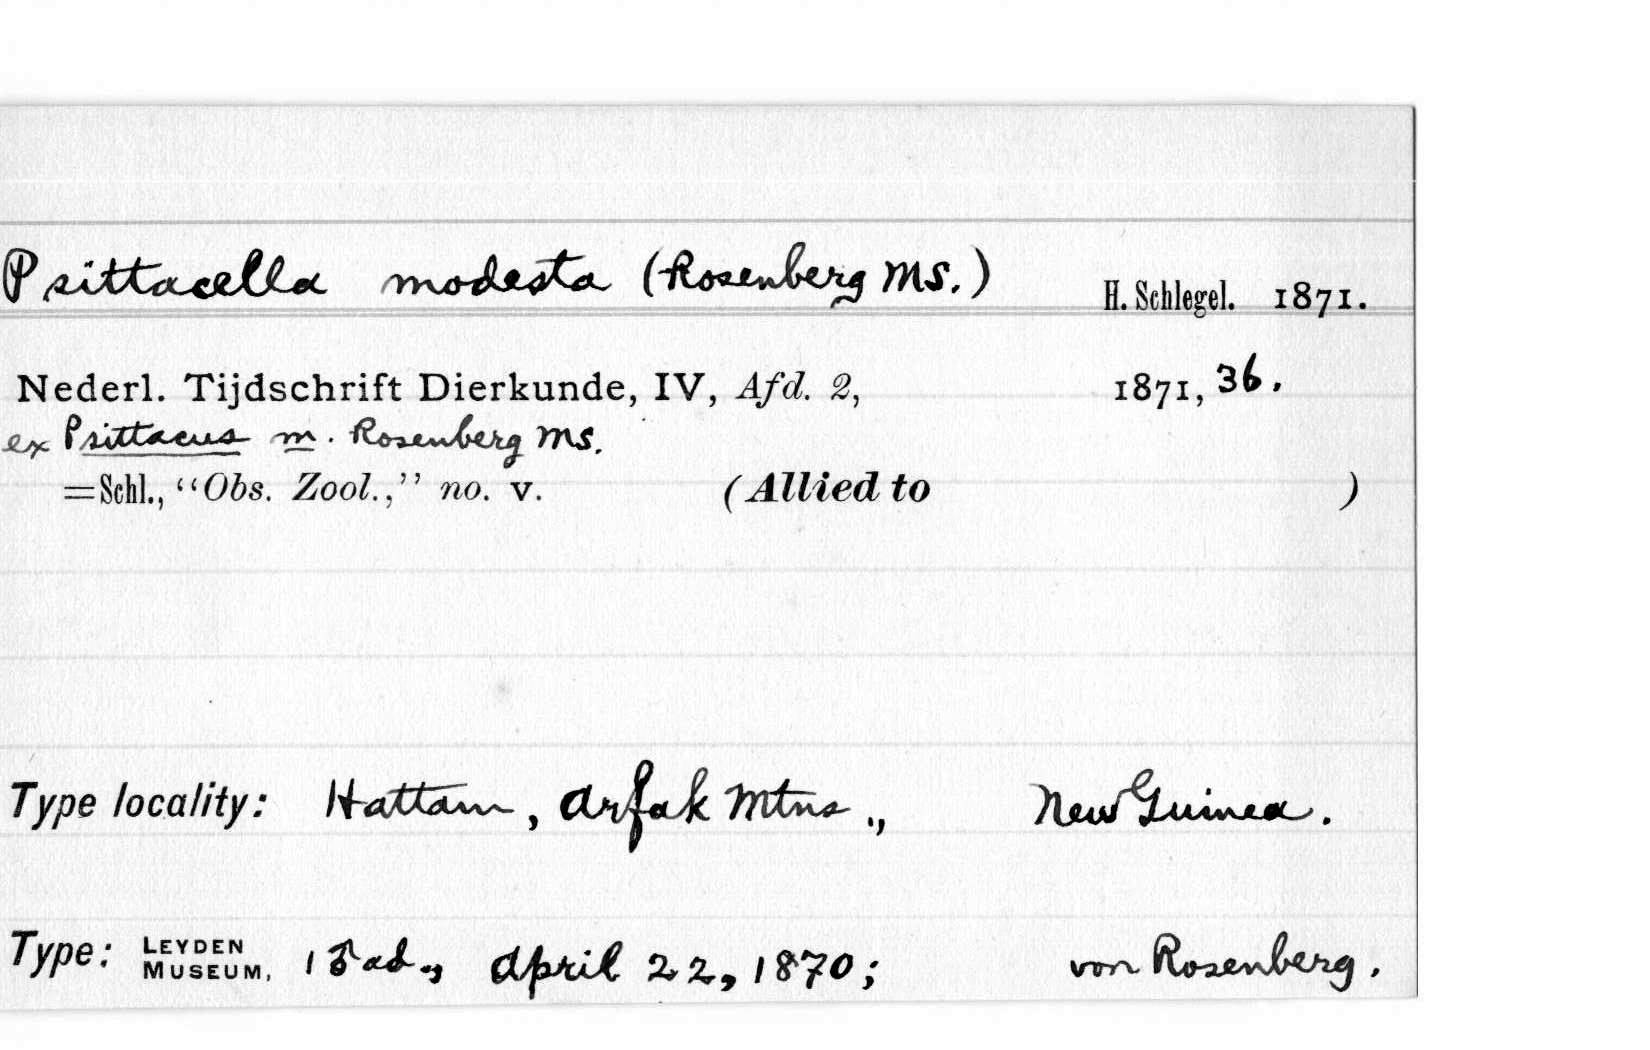 Psittacella modesta (Rosenberg MS.) H. Schlegel. 1871.
Nederl. Tijdschrift Dierkunde, IV, Afd. 2, 1871, 36.
ex Psittacus m. Rosenberg MS.
=Schl., “Obs. Zool.,” no. v. (Allied to )
Type locality: Hattam, Arfak Mtns., New Guinea.
Type: LEYDEN MUSEUM, 1 ♂ ad., April 22, 1870; von Rosenberg.